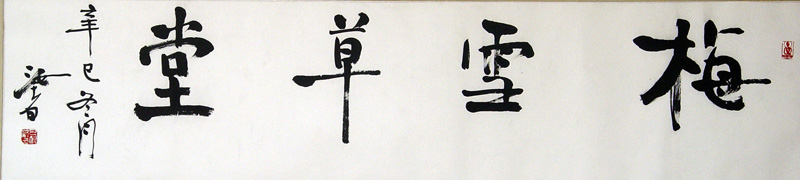 梅雪草堂
辛巳冬月